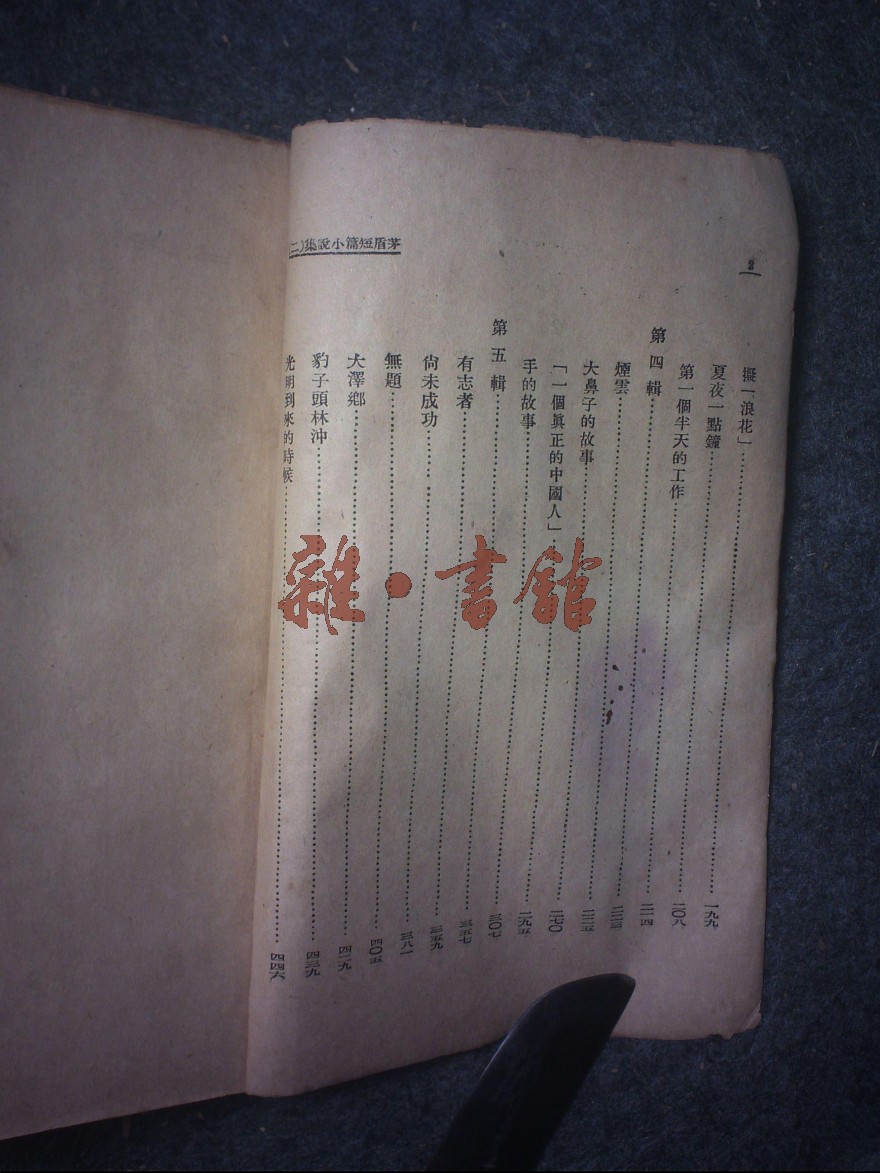 茅盾短篇小說集(二)
2
擬「浪花」……一九九
夏夜一點鐘……二〇八
第一個半天的工作……二一四
第四輯……二二三
煙雲……二二五
大鼻子的故事……二七〇
「一個眞正的中國人」……二九五
手的故事……三〇七
第五輯……三五七
有志者……三五九
尙未成功……三八一
無題……四〇五
大澤鄉……四一九
豹子頭林沖……四三九
光明到來的時候……四四六
雜·書館